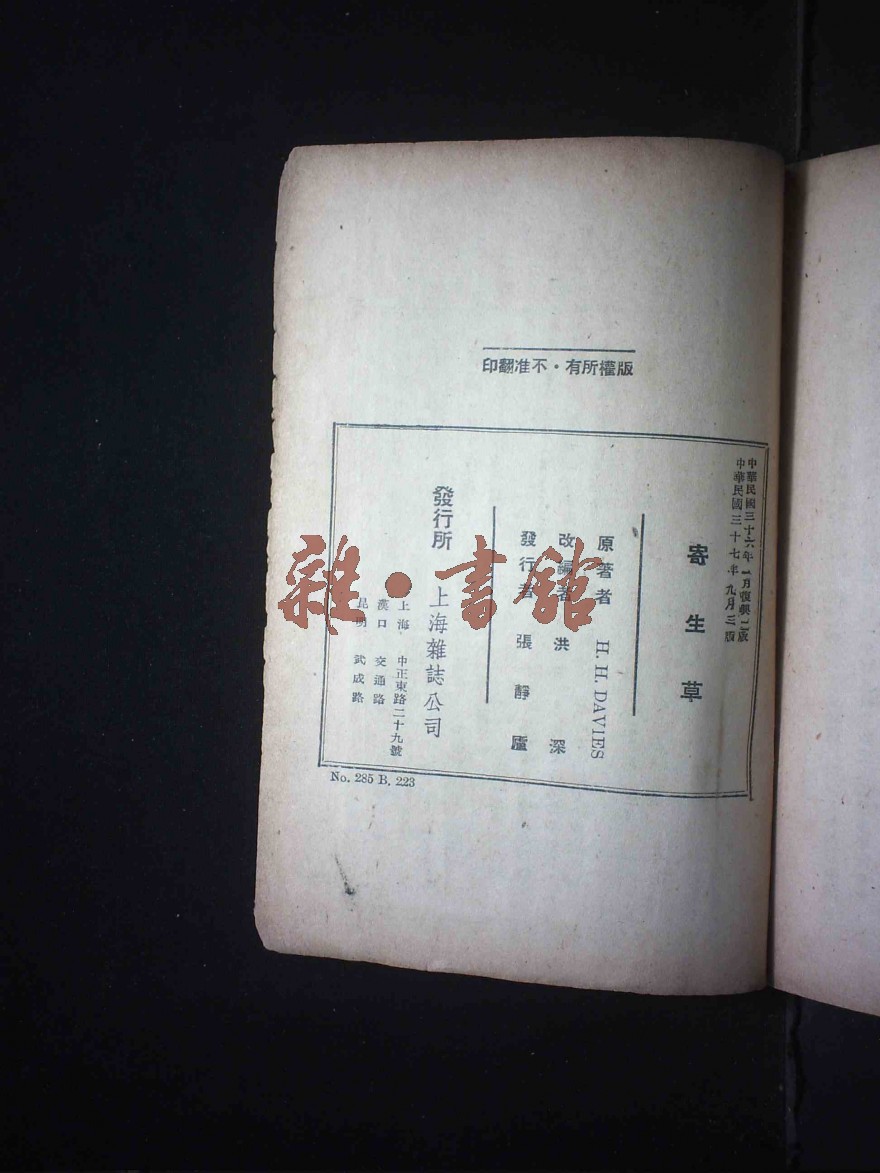 印翻准不・有所權版
中華民國三十六年一月復興二版
中華民國三十七年九月三版
寄生草
原著者 H. H. DAVIES
改編者 洪深
發行者 張靜廬
發行所 上海雜誌公司
上海 中正東路二十九號
漢口 交通路
昆明 武成路
No. 285 B. 223
雜・書館